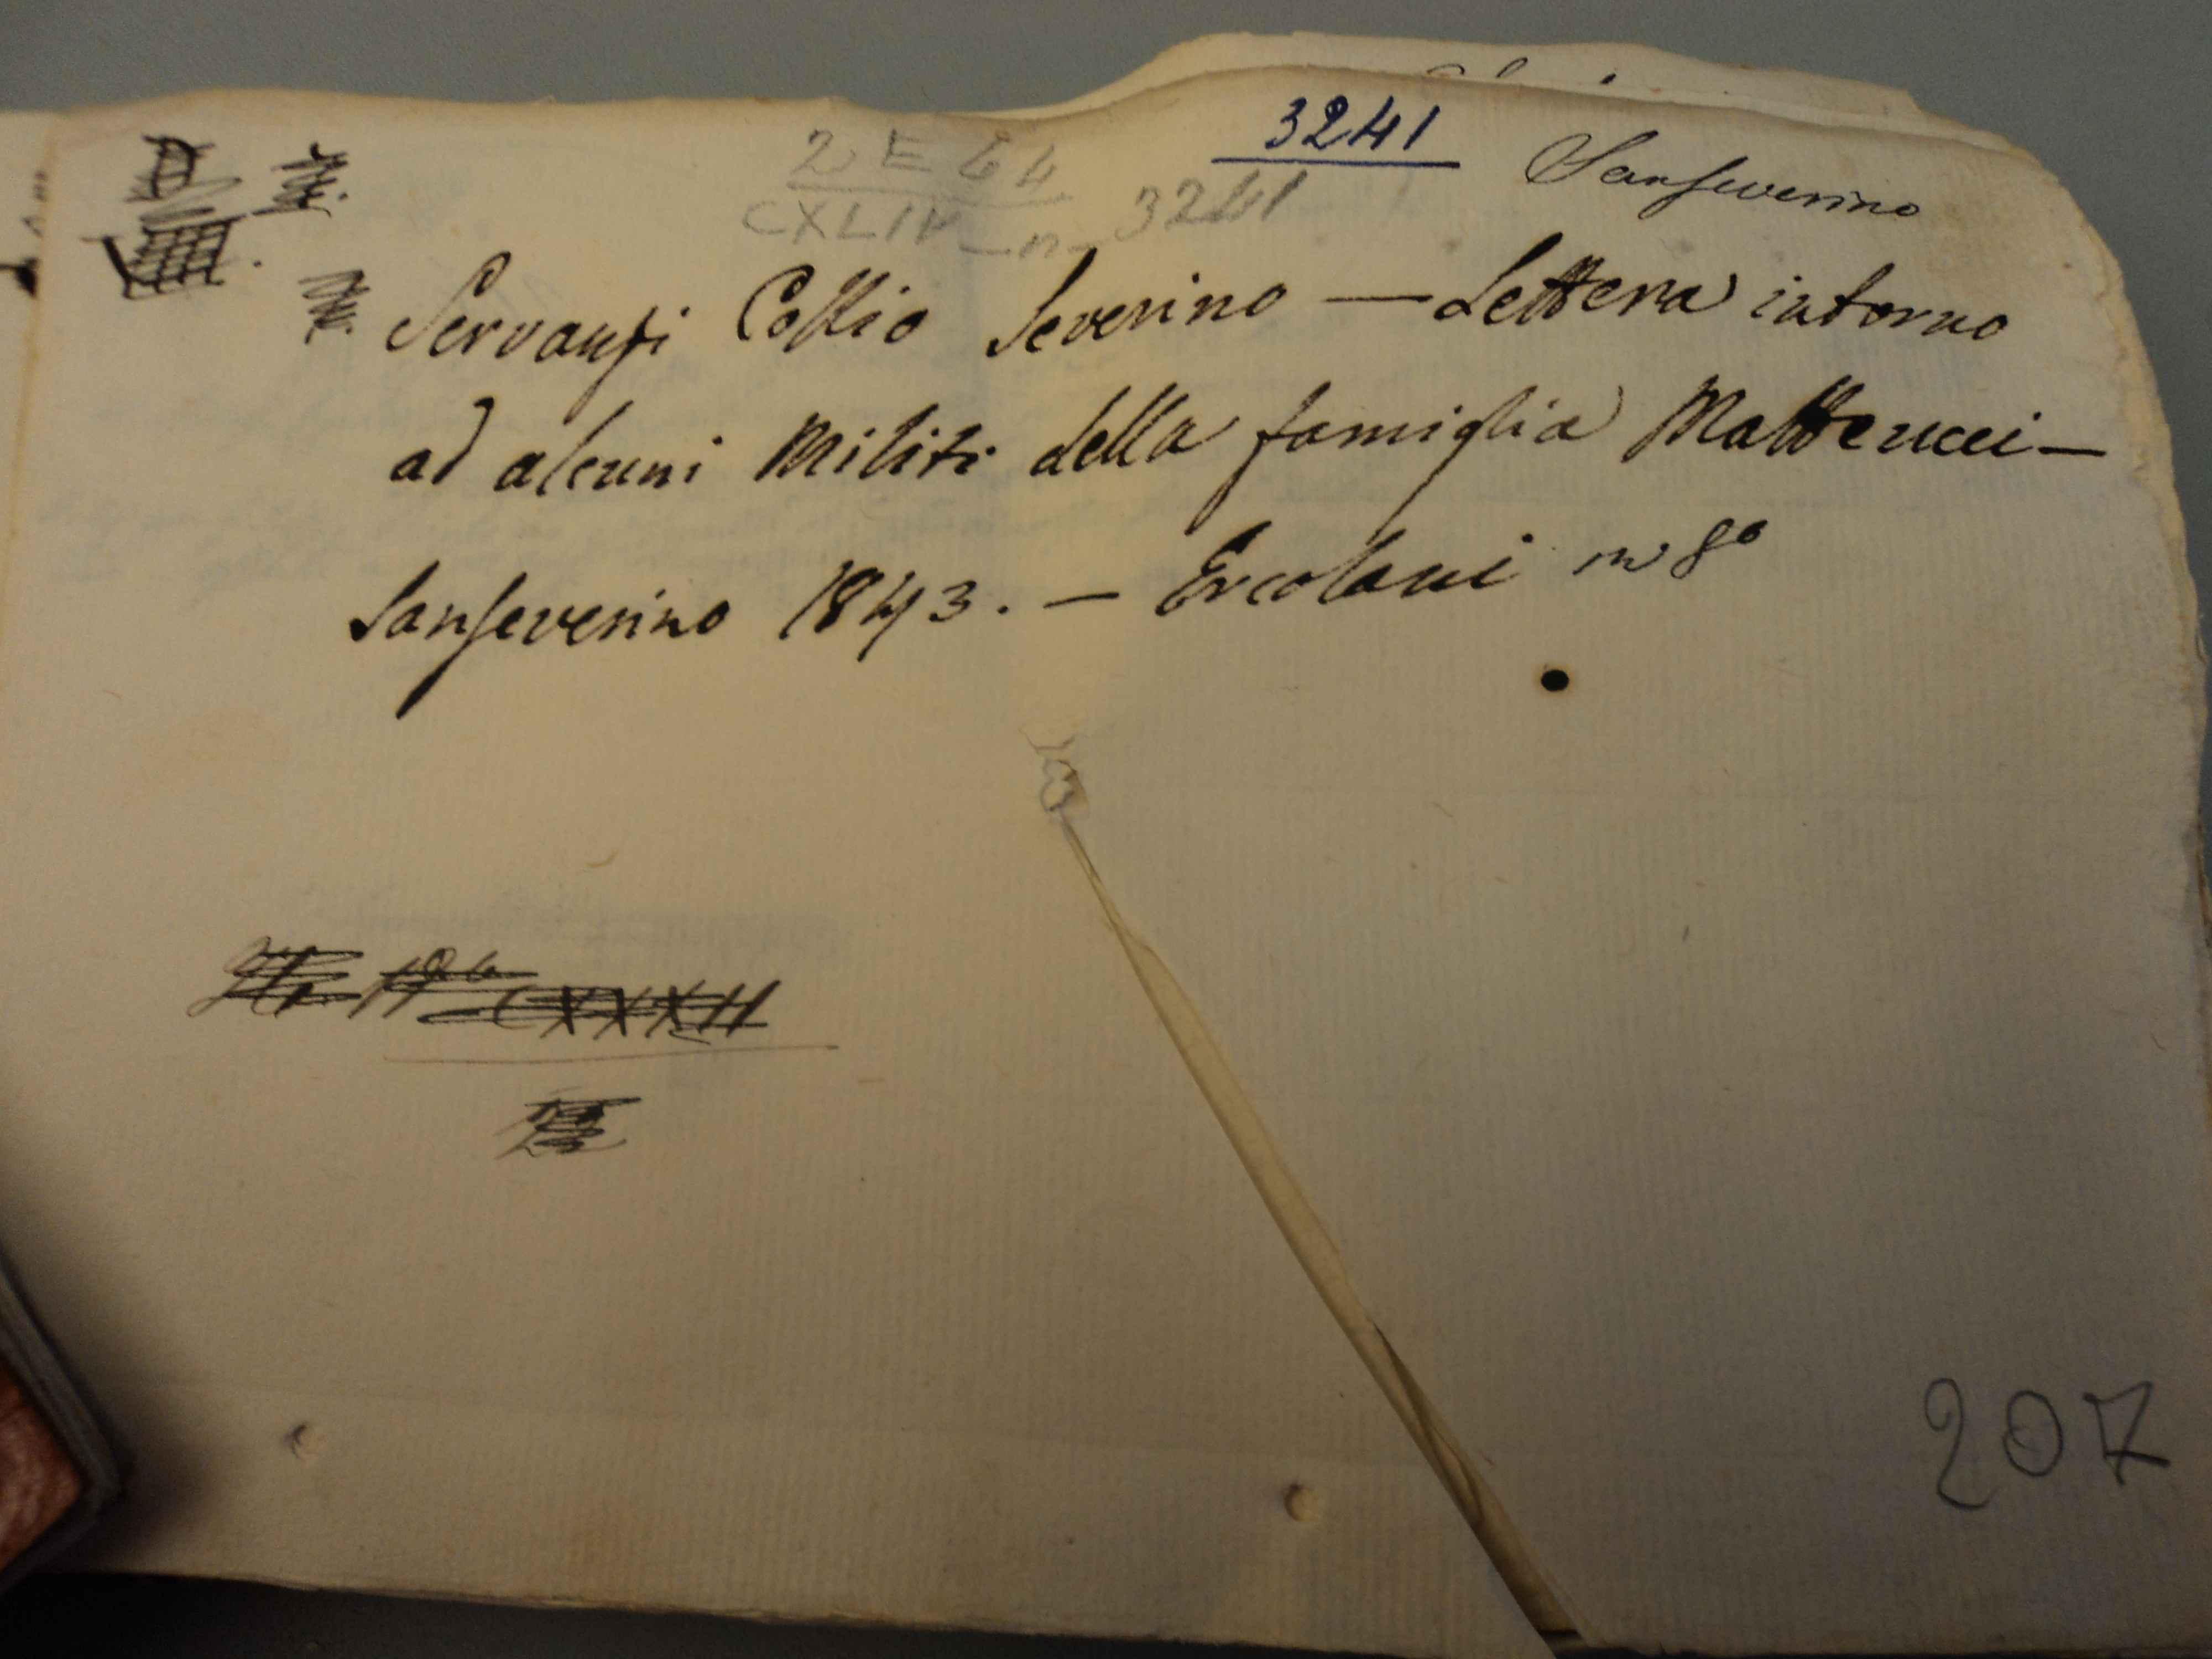 3241
Sanseverino
2 E 64
CXLIV - n. 3241
Servanzi Collio Severino — Lettera intorno
ad alcuni Militi della famiglia Matteucci —
Sanseverino 1843. — Ercolani in 8º
CXXXII
207